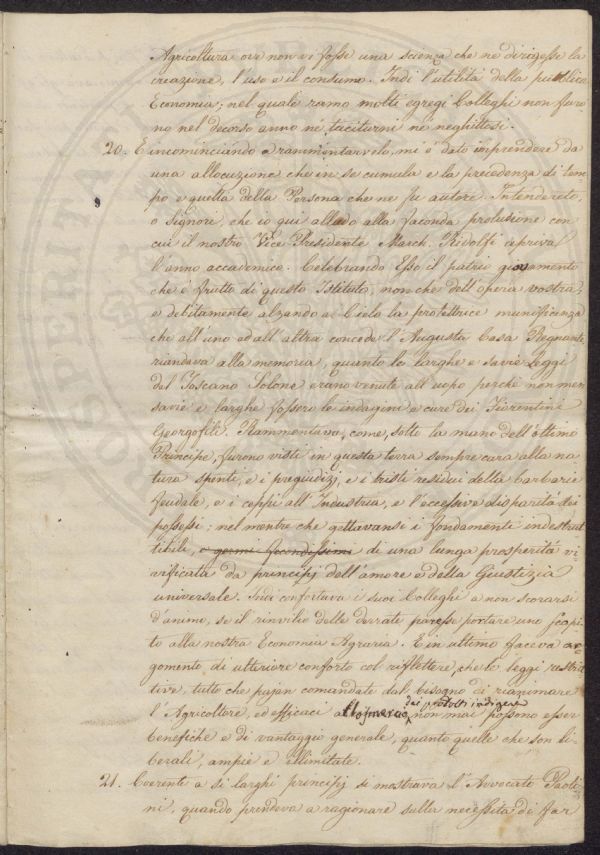 Agricoltura ove non vi fosse una scienza che ne dirigesse la
creazione, l'uso e il consumo. Indi l'utilità della pubblica
Economia; nel quale ramo molti egregi Colleghi non furo
no nel decorso anno nè taciturni nè neghittosi.
20. E incominciando a rammentarvelo, mi è dato imprendere da
una allocuzione che in se cumula e la precedenza di tem
po e quella della Persona che ne fu autore. Intenderete,
o Signori, che io qui alludo alla faconda prolusione con
cui il nostro Vice Presidente March. Ridolfi apriva
l'anno accademico. Celebrando Esso il patrio giovamento
che è frutto di questo Istituto, non che dell'opera vostra,
e debitamente alzando al Cielo la protettrice munificenza
che all'uno ed all'altra concede l'Augusta Casa Regnante,
riandava alla memoria, quanto le larghe e savie Leggi
del Toscano Solone erano venute all'uopo perchè non men
savie e larghe fossero le indagini e cure dei Fiorentini
Georgofili. Rammentava, come, sotto la mano dell'ottimo
Principe, furono visti in questa terra sempre cara alla na
tura spenti, e i pregiudizj, e i tristi residui della barbarie
feudale, e i ceppi all'Industria, e l'eccessiva disparità dei
possessi: nel mentre che gettavansi i fondamenti indestrut
tibili, e germi fecondissimi di una lunga prosperità vi-
vificata da principij dell'amore e della Giustizia
universale. Indi confortava i suoi Colleghi a non scorarsi
d'animo, se il rinvilio delle derrate paresse portare uno scapi
to alla nostra Economia Agraria. E in ultimo faceva ar-
gomento di ulteriore conforto col riflettere, che le leggi restrit
tive, tutto che pajan comandate dal bisogno di rianimare
dei prodotti indigeni
l'Agricoltore, ed efficaci allo smercio, non mai possono esser
benefiche e di vantaggio generale, quanto quelle che son li-
berali, ampie e illimitate.
21. Coerente a si larghi principij si mostrava l'Avvocato Paoli-
ni, quando prendeva a ragionare sulla necessità di far